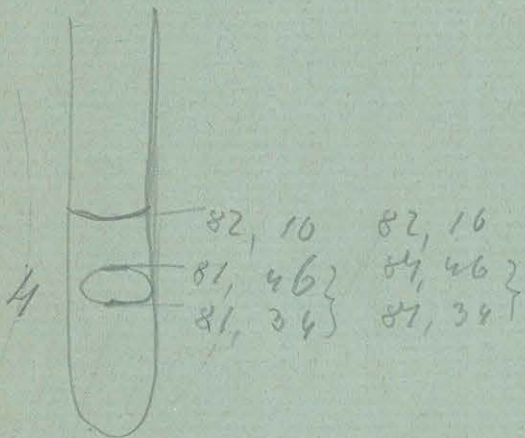 82, 16 82, 16
81, 46 } 81, 46 }
4 81, 34 } 81, 34 }